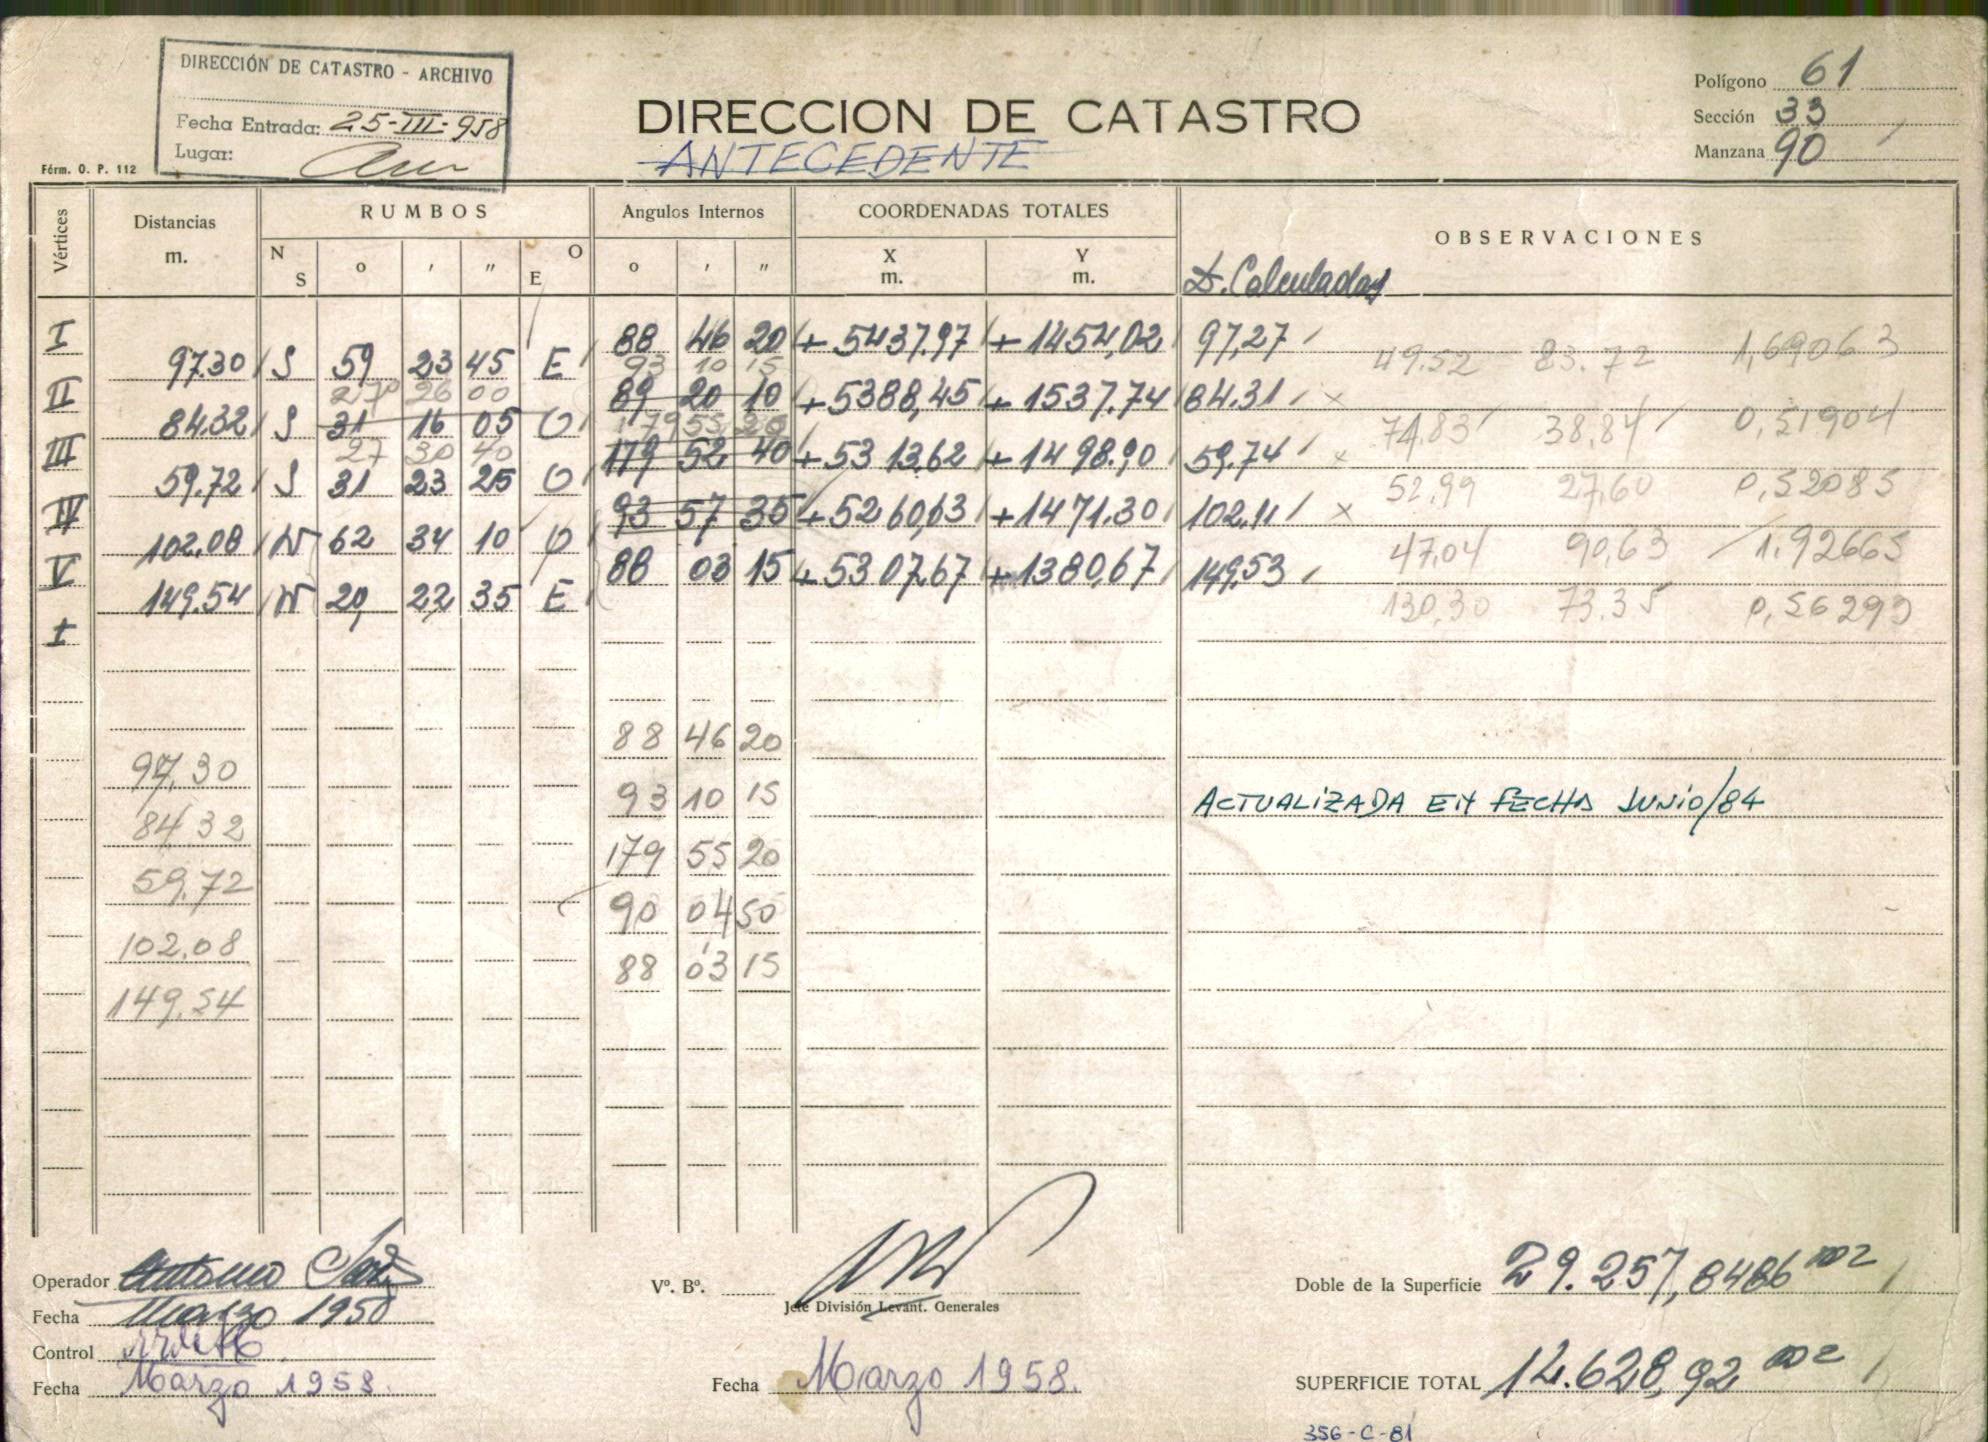 DIRECCIÓN DE CATASTRO - ARCHIVO
Fecha Entrada: 25-III-958
Lugar:
Fórm. O. P. 112
DIRECCION DE CATASTRO
ANTECEDENTE
Polígono 61
Sección 33
Manzana 90
Vértices Distancias m. RUMBOS Angulos Internos COORDENADAS TOTALES OBSERVACIONES
N S ° ' " E O ° ' " X m. Y m. D. Calculadas
I 88 46 20 + 5437.97 + 1454,02 97,27
97.30 S 59 23 45 E 93 10 15 49.52 83.72 1,69063
II 27 26 00 89 20 10 + 5388,45 + 1537.74 84.31 x
84.32 S 31 16 05 O 179 55 20 74,83 38,84 0,51904
III 27 30 40 179 52 40 + 5313,62 + 1498.90 59.74 x
59.72 S 31 23 25 O 52,99 27,60 0,52085
IV 93 57 35 + 5260,63 + 1471.30 102.11 x
102.08 N 62 34 10 O 47,04 90,63 1,92665
V 88 03 15 + 5307.67 + 1380,67 149,53
149.54 N 29 22 35 E 130,30 73.35 0,56293
I
88 46 20
97,30
93 10 15 ACTUALIZADA EN FECHA JUNIO/84
84,32
179 55 20
59,72
90 04 50
102,08
88 03 15
149,54
Operador Antonio
Fecha Marzo 1958
Control
Fecha Marzo 1958.
Vº. Bº.
Jefe División Levant. Generales
Fecha Marzo 1958.
Doble de la Superficie 29.257,8486 m2
SUPERFICIE TOTAL 14.628,92 m2
356-C-81